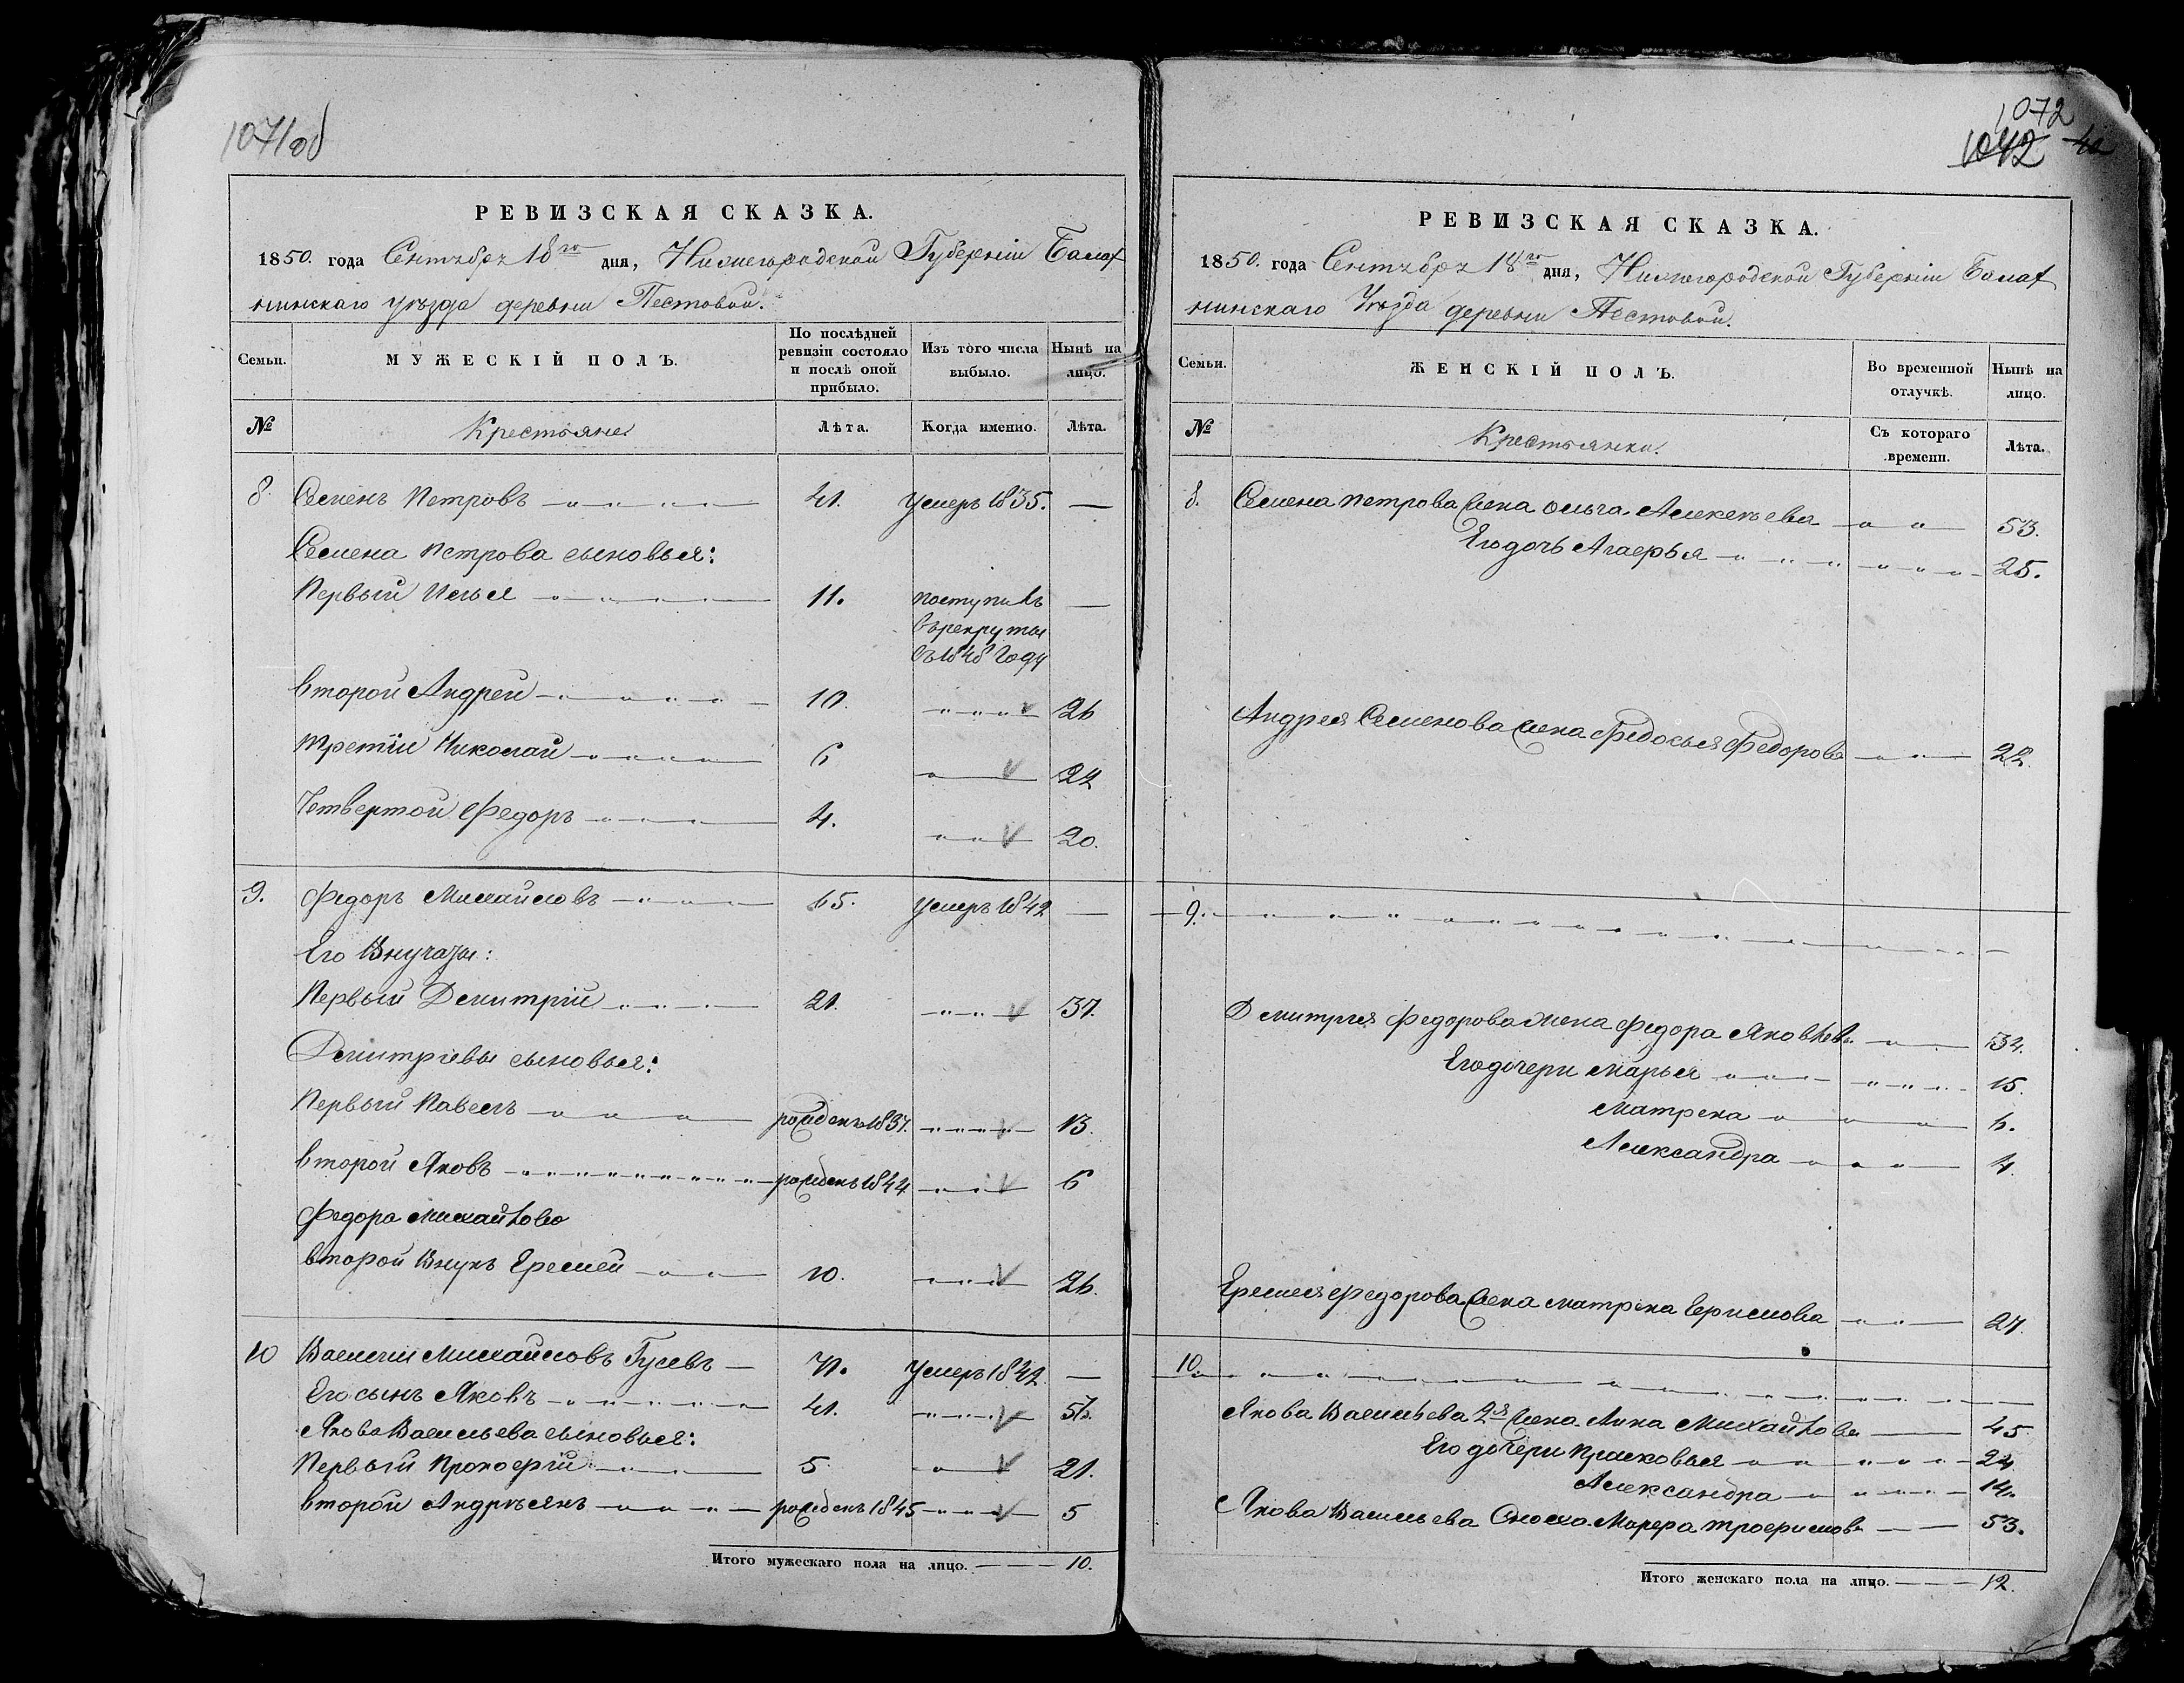 1071об
РЕВИЗСКАЯ СКАЗКА.
1850. года Сентября 18го дня, Нижегородской Губерніи Балах
нинскаго уѣзда деревни Пестовой.
Семьи.
МУЖЕСКІЙ ПОЛЪ.
По послѣдней ревизіи состояло и послѣ оной прибыло.
Изъ того числа выбыло.
Нынѣ на лицо.
№ Крестьяне. Лѣта. Когда именно. Лѣта.
8. Семенъ Петровъ 41. умеръ 1835. —
Семена Петрова сыновья:
Первый Илья 11. поступилъ —
въ рекруты
въ 1848 году
второй Андрей 10. 26
третій Николай 6 22
Четвертой Федоръ 4. 20.
9. Федоръ Михайловъ 65. умеръ 1842 —
Его Внучаты:
Первый Дмитрій 21. 37.
Дмитріевы сыновья:
Первый Павелъ рожденъ 1837. 13.
второй Яковъ рожденъ 1844 6
Федора Михайлова
второй Внукъ Еремей 10. 26.
10 Василій Михайловъ Гусевъ — 71. Умеръ 1842 —
Его сынъ Яковъ 41. 57.
Якова Васильева сыновья:
Первый Прокофій 5 21.
второй Андреянъ рожденъ 1845 5
Итого мужескаго пола на лицо. — — — 10.
1072
1042
РЕВИЗСКАЯ СКАЗКА.
1850. года Сентября 18го дня, Нижегородской Губерніи Балах
нинскаго Уѣзда деревни Пестовой.
Семьи.
ЖЕНСКІЙ ПОЛЪ.
Во временной отлучкѣ.
Нынѣ на лицо.
№ Крестьянки. Съ котораго времени. Лѣта.
8. Семена Петрова жена Ольга Алексеева 53.
Его дочь Агафья 25.
Андрея Семенова жена Федосья Федорова 22.
9.
Дмитрія Федорова жена Федора Яковлева 34.
Его дочери Марья 15.
Матрена 6.
Александра 4.
Еремея Федорова жена Матрена Ефимова 27.
10.
Якова Васильева 2я жена Анна Михайлова 45
Его дочери Прасковья 24
Александра 14.
Якова Васильева Сноха Марфа Трофимова 53.
Итого женскаго пола на лицо. — — — 12.